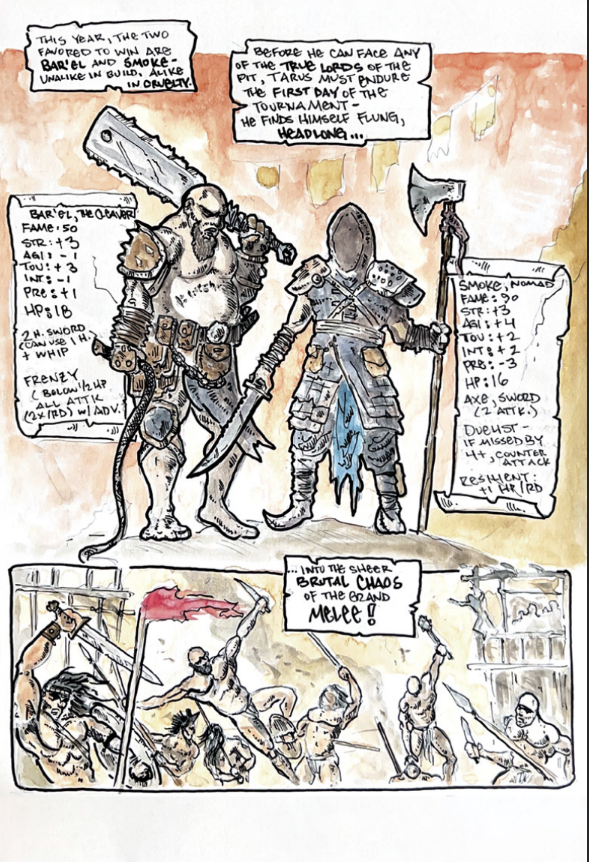 THIS YEAR, THE TWO
FAVORED TO WIN ARE
BAR'EL AND SMOKE-
UNALIKE IN BUILD, ALIKE
IN CRUELTY.
BEFORE HE CAN FACE ANY
OF THE TRUE LORDS OF THE
PIT, TARUS MUST ENDURE
THE FIRST DAY OF THE
TOURNAMENT-
HE FINDS HIMSELF FLUNG,
HEADLONG...
BAR'EL, THE CLEAVER
FAME: 50
STR: +3
AGI: -1
TOU: +3
INT: -1
PRE: +1
HP: 18
2H. SWORD
(CAN USE 1H.)
+ WHIP
FRENZY
(BELOW 1/2 HP
ALL ATTK
(2X/RD) W/ ADV.
SMOKE, NOMAD
FAME: 30
STR: +3
AGI: +4
TOU: +2
INT: +2
PRE: -3
HP: 16
AXE, SWORD
(2 ATTK.)
DUELIST-
IF MISSED BY
4+, COUNTER
ATTACK
RESILIENT:
+1 HP/RD
...INTO THE SHEER
BRUTAL CHAOS
OF THE GRAND
MELEE!